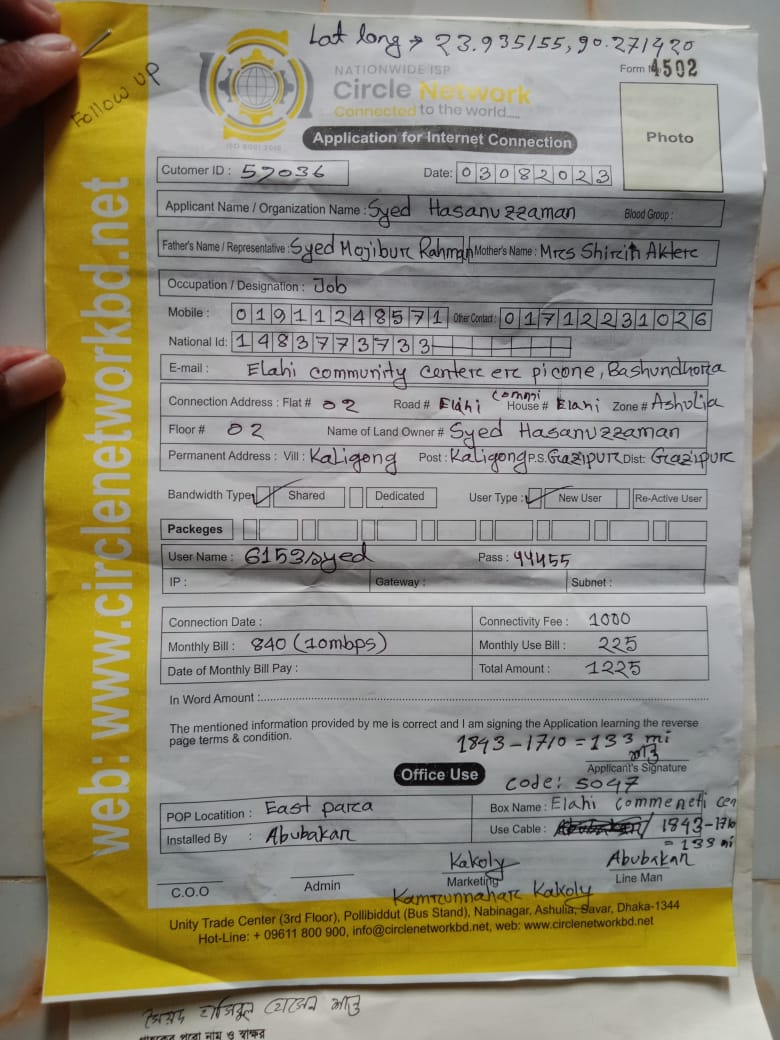 Lat long → 23.935155, 90.271420
Follow UP
NATIONWIDE ISP
Form 4502
Circle Network
Connected to the world.....
ISO 9001:2015
Application for Internet Connection
Photo
Cutomer ID : 57036 Date: 03082023
Applicant Name / Organization Name : Syed Hasanuzzaman Blood Group :
Father's Name / Representative : Syed Mojibur Rahman Mother's Name : Mrs Shirin Akter
Occupation / Designation : Job
Mobile : 01911248571 Other Contact : 01712231026
National Id: 1483773733
E-mail : Elahi community center er picone, Bashundhora
Connection Address : Flat # 02 Road # Elahi commi House # Elahi Zone # Ashulia
Floor # 02 Name of Land Owner # Syed Hasanuzzaman
Permanent Address : Vill : Kaligong Post : Kaligong P.S. Gazipur Dist: Gazipur
Bandwidth Type Shared Dedicated User Type : New User Re-Active User
Packeges
User Name : 6153syed Pass : 44455
IP : Gateway : Subnet :
Connection Date : Connectivity Fee : 1000
Monthly Bill : 840 (10mbps) Monthly Use Bill : 225
Date of Monthly Bill Pay : Total Amount : 1225
In Word Amount :
The mentioned information provided by me is correct and I am signing the Application learning the reverse
page terms & condition.
1843-1710 = 133 mi
Applicant's Signature
Office Use
code: 5047
POP Locatition : East para Box Name : Elahi commeneti cen
Installed By : Abubakar Use Cable : 1843-1710
= 133 mi
Kakoly Abubakar
C.O.O Admin Marketing Line Man
Kamrunnahar Kakoly
Unity Trade Center (3rd Floor), Pollibiddut (Bus Stand), Nabinagar, Ashulia, Savar, Dhaka-1344
Hot-Line: + 09611 800 900, info@circlenetworkbd.net, web: www.circlenetworkbd.net
web: www.circlenetworkbd.net